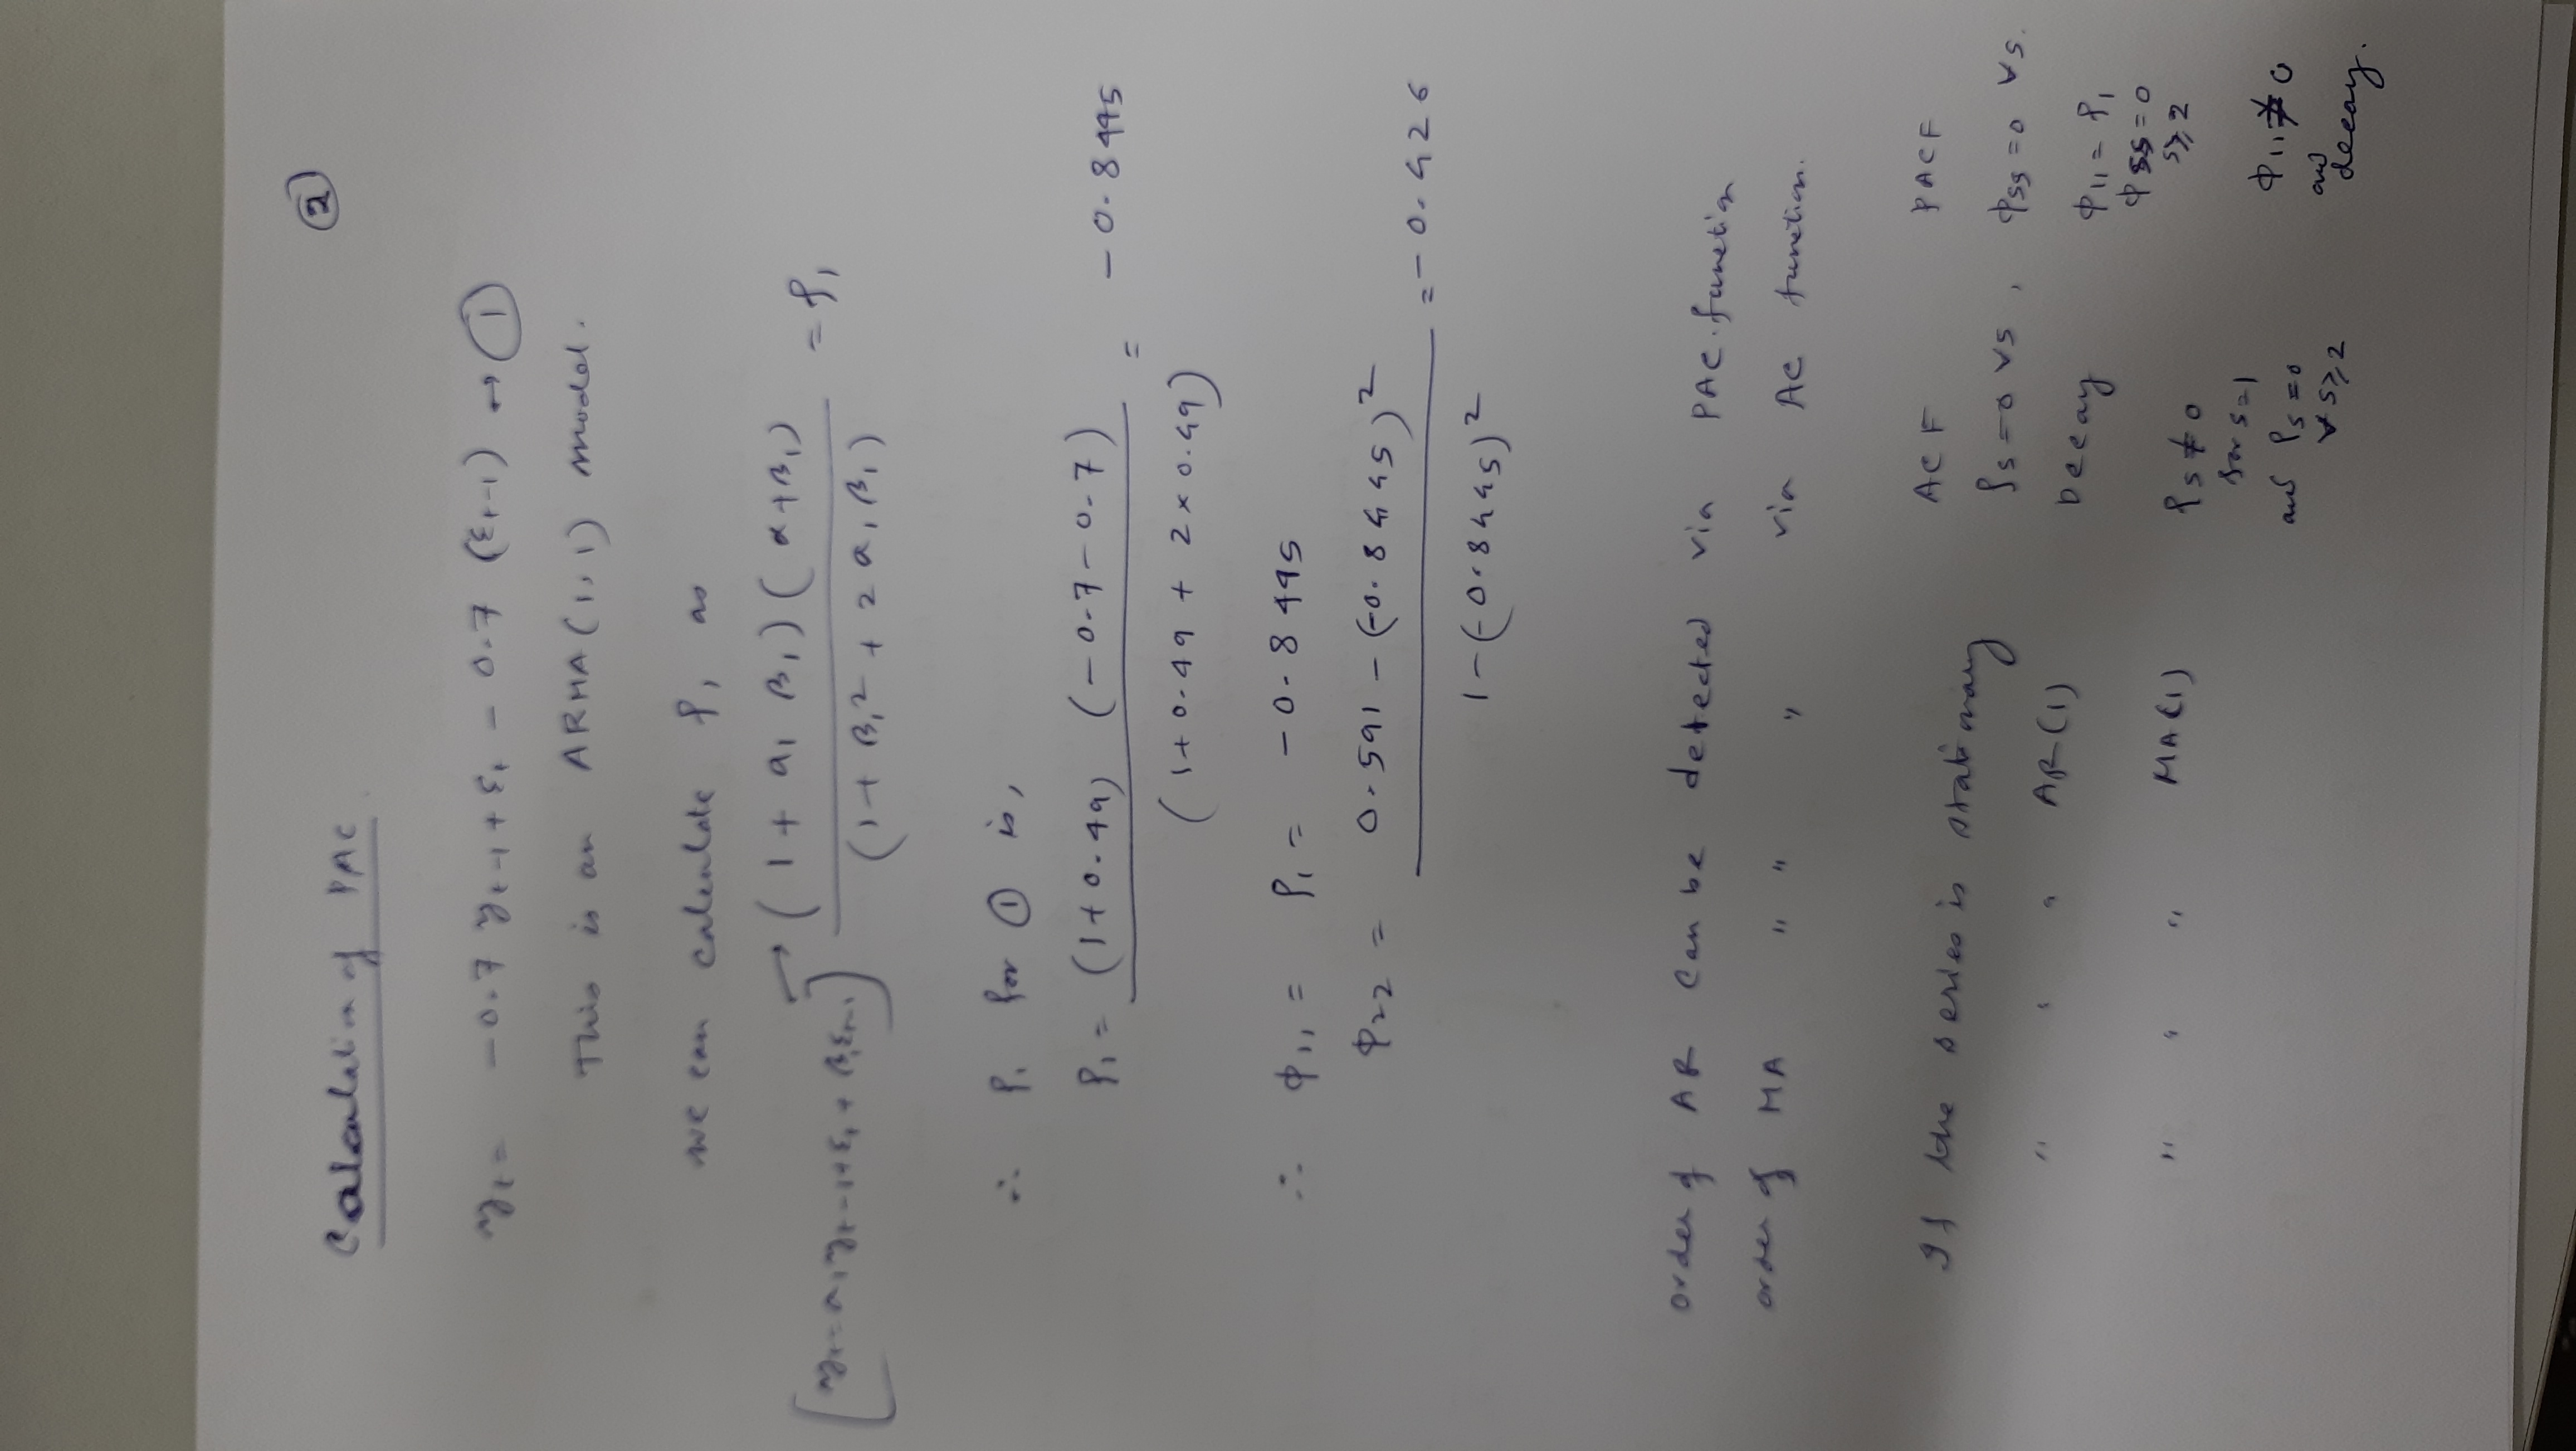 ②
Calculation of PAC
yt = -0.7 yt-1 + εt - 0.7 (εt-1) → ①
This is an ARMA(1,1) model.
we can calculate ρ1 as
[yt = a1 yt-1 + εt + β1 εt-1] → (1 + a1 β1)(α + β1) / (1 + β1² + 2 a1 β1) = ρ1
∴ ρ1 for ① is,
ρ1 = (1 + 0.49) (-0.7 - 0.7) / (1 + 0.49 + 2 × 0.49) = -0.8445
∴ φ11 = ρ1 = -0.8445
φ22 = 0.591 - (-0.8445)² / 1 - (-0.8445)² = -0.426
order of AR can be detected via PAC. function
order of MA " " " via AC function.
ACF PACF
If the series is stationary ρs = 0 ∀s, φss = 0 ∀s.
" " " AR(1) Decay φ11 = ρ1
φss = 0
s ≥ 2
" " " MA(1) ρs ≠ 0
for s=1
and ρs = 0
∀ s ≥ 2
φ11 ≠ 0
and
decay.